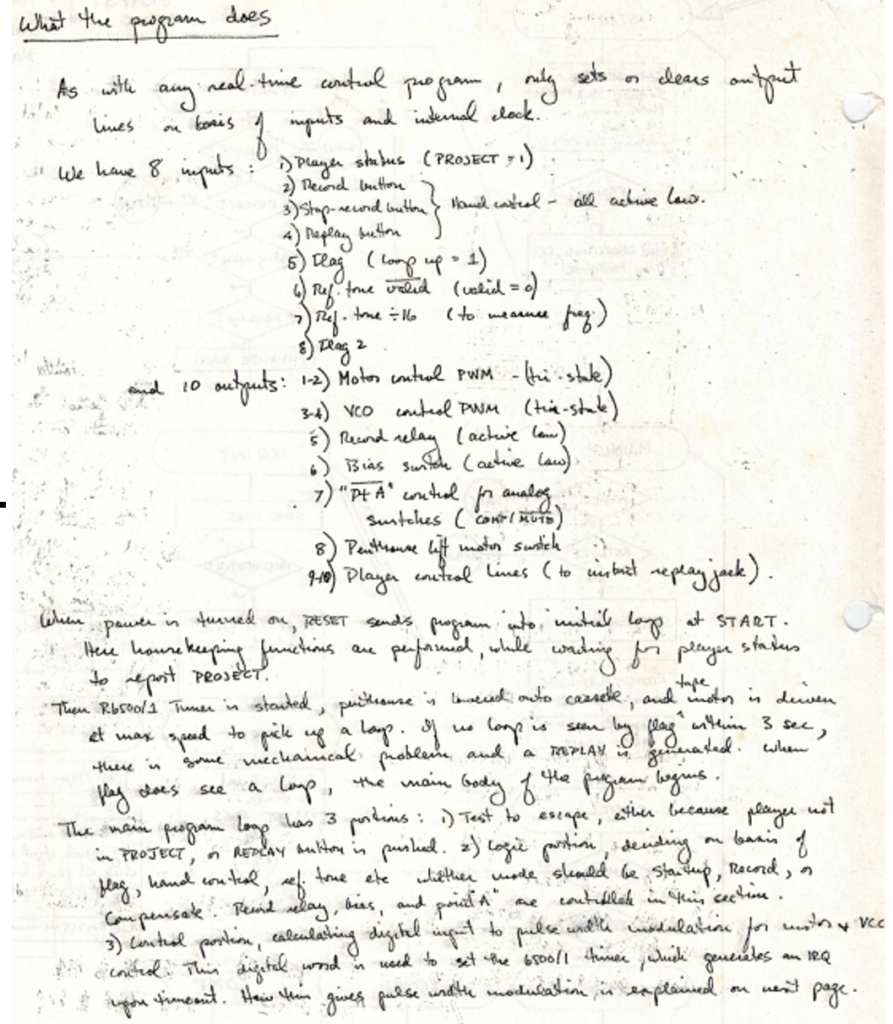 What the program does
As with any real-time control program, only sets or clears output
lines on basis of inputs and internal clock.
We have 8 inputs: 1) Player status (PROJECT = 1)
2) Record button
3) Stop-record button } Hand control - all active low.
4) Replay button
5) Flag (loop up = 1)
6) Ref. tone valid (valid = 0)
7) Ref. tone ÷16 (to measure freq.)
8) Flag 2
and 10 outputs: 1-2) Motor control PWM - (tri-state)
3-4) VCO control PWM (tri-state)
5) Record relay (active low)
6) Bias switch (active low)
7) "Pt A" control for analog
switches (CONT/MUTE)
8) Penthouse lift motor switch
9-10) Player control lines (to instruct replay jack).
When power is turned on, RESET sends program into initial loop at START.
Here housekeeping functions are performed, while waiting for player status
to report PROJECT.
Then R6500/1 Timer is started, penthouse is lowered onto cassette, and tape motor is driven
at max speed to pick up a loop. If no loop is seen by flag within 3 sec,
there is some mechanical problem and a REPLAY is generated. When
flag does see a loop, the main body of the program begins.
The main program loop has 3 portions: 1) Test to escape, either because player not
in PROJECT, or REPLAY button is pushed. 2) Logic portion, deciding on basis of
flag, hand control, ref. tone etc whether mode should be Startup, Record, or
Compensate. Record relay, bias, and point "A" are controlled in this section.
3) Control portion, calculating digital input to pulse width modulation for motor & VCO
control. This digital word is used to set the 6500/1 timer, which generates an IRQ
upon timeout. How this gives pulse width modulation is explained on next page.